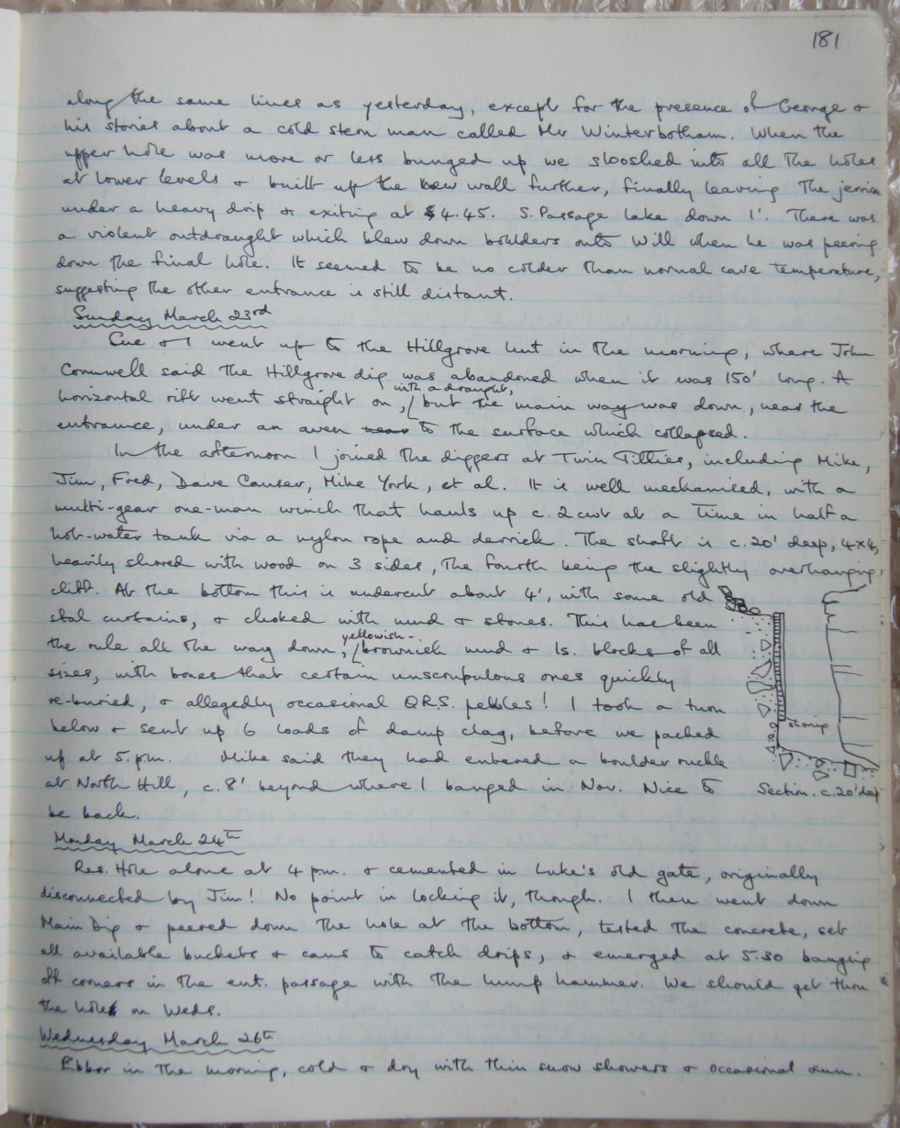 181
along the same lines as yesterday, except for the presence of George &
his stories about a cold stern man called Mr Winterbotham. When the
upper hole was more or less bunged up we slooshed into all the holes
at lower levels & built up the new wall further, finally leaving the jerrican
under a heavy drip & exiting at 4.45. S. Passage lake down 1'. There was
a violent outdraught which blew down boulders onto Will when he was peering
down the final hole. It seemed to be no colder than normal cave temperature,
suggesting the other entrance is still distant.
Sunday March 23rd
Sue & I went up to the Hillgrove hut in the morning, where John
Cornwell said the Hillgrove dig was abandoned when it was 150' long. A
horizontal rift went straight on, with a draught, but the main way was down, near the
entrance, under an aven to the surface which collapsed.
In the afternoon I joined the diggers at Twin Titties, including Mike,
Jim, Fred, Dave Causer, Mike York, et al. It is well mechanised, with a
multi-gear one-man winch that hauls up c. 2 cwt at a time in half a
hot-water tank via a nylon rope and derrick. The shaft is c. 20' deep, 4x4,
heavily shored with wood on 3 sides, the fourth being the slightly overhanging
cliff. At the bottom this is undercut about 4', with some old
stal curtains, & choked with mud & stones. This has been
the rule all the way down, yellowish-brownish mud & ls. blocks of all
sizes, with bones that certain unscrupulous ones quickly
re-buried, & allegedly occasional O.R.S. pebbles! I took a turn
below & sent up 6 loads of damp clag, before we packed
up at 5. pm. Mike said they had entered a boulder ruckle
at North Hill, c. 8' beyond where I banged in Nov. Nice to
be back.
shoring
Section. c. 20' deep
Monday March 24th
Res. Hole alone at 4 pm. & cemented in Luke's old gate, originally
disconnected by Jim! No point in locking it, though. I then went down
Main Dig & peered down the hole at the bottom, tested the concrete, set
all available buckets & cans to catch drips, & emerged at 5.30 banging
off corners in the ent. passage with the lump hammer. We should get thru
the hole on Weds.
Wednesday March 26th
Ebbor in the morning, cold & dry with thin snow showers & occasional sun.